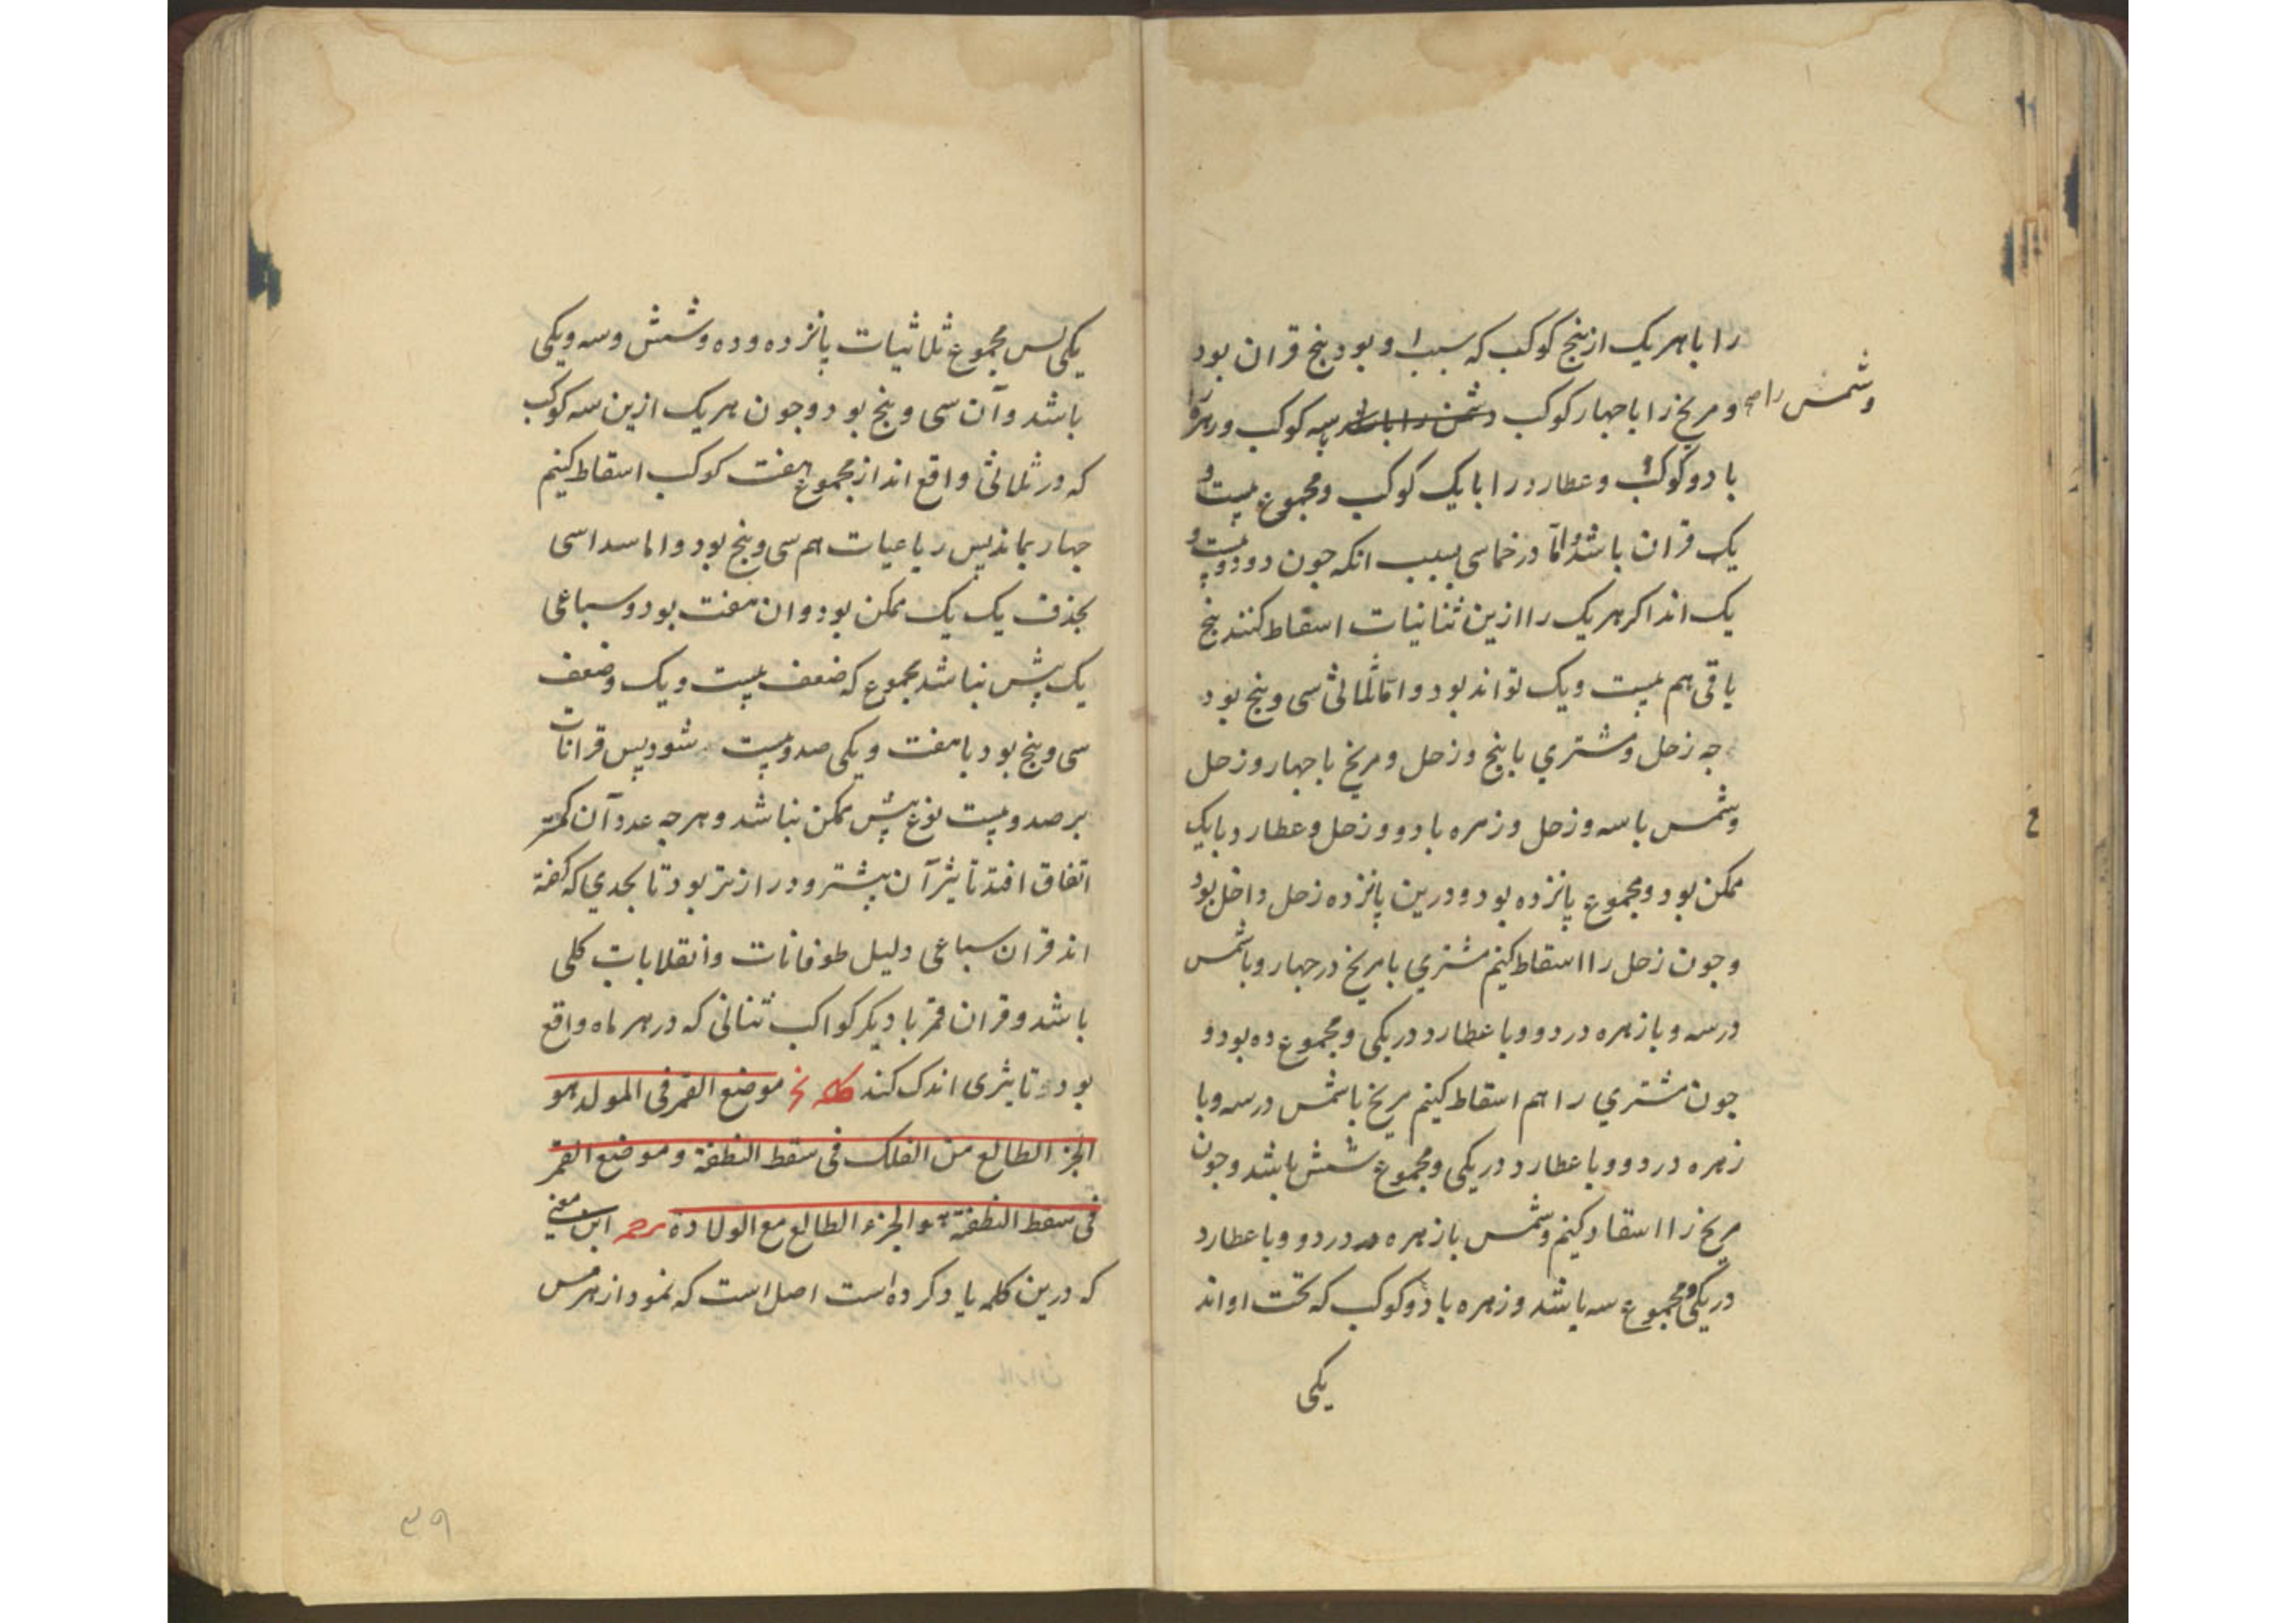 را با هر یک از پنج کوکب که سبب او بود پنج قران بود
وشمس را صح
و مریخ را با چهار کوکب وشمس را با سه کوکب و زهره را
با دو کوکب و عطارد را با یک کوکب و مجموع بیست و
یک قران باشد و اما در خماسی بسبب انکه چون دو دو بیست و
یک اند اکر هر یک را ازین ثنائیات اسقاط کنند پنج
باقی هم بیست و یک تواند بود و اما ثلاثی سی و پنج بود
چه زحل و مشتری با پنج و زحل و مریخ با چهار و زحل
وشمس با سه و زحل و زهره با دو و زحل و عطارد با یک
ممکن بود و مجموع پانزده بود و درین پانزده زحل داخل بود
و چون زحل را اسقاط کنیم مشتری با مریخ در چهار و با شمس
در سه و با زهره در دو و با عطارد در یکی و مجموع ده بود و
چون مشتری را هم اسقاط کنیم مریخ با شمس در سه و با
زهره در دو و با عطارد در یکی و مجموع شش باشد و چون
مریخ را اسقاد کنیم وشمس با زهره در دو و با عطارد
در یکی و مجموع سه باشد و زهره با دو کوکب که تحت او اند
یکی
یکی پس مجموع ثلاثیات پانزده و ده و شش و سه و یکی
باشد و آن سی و پنج بود و چون هر یک ازین سه کوکب
که در ثلاثی واقع اند از مجموع هفت کوکب اسقاط کنیم
چهار بماند پس رباعیات هم سی و پنج بود و اما سداسی
بحذف یک یک ممکن بود و ان هفت بود و سباعی
یک بیش نباشد مجموع که ضعف بیست و یک و ضعف
سی و پنج بود با هفت و یکی صد و بیست شود پس قرانات
بر صد و بیست نوع بیش ممکن نباشد و هر چه عدد آن کمتر
اتفاق افتد تاثیر آن بیشتر و درازتر بود تا بحدی که کفته
اند قران سباعی دلیل طوفانات و انقلابات کلی
باشد و قران قمر با دیکر کواکب ثنائی که در هر ماه واقع
بود و تاثیری اندک کند کلمه نخ موضع القمر فی المولد هو
الجزء الطالع من الفلک فی سقط النطفة و موضع القمر
فی سقط النطفة هو الجزء الطالع مع الولادة این معنی
که درین کلمه یاد کرده است اصل است که نمودار هرمس
۳۹